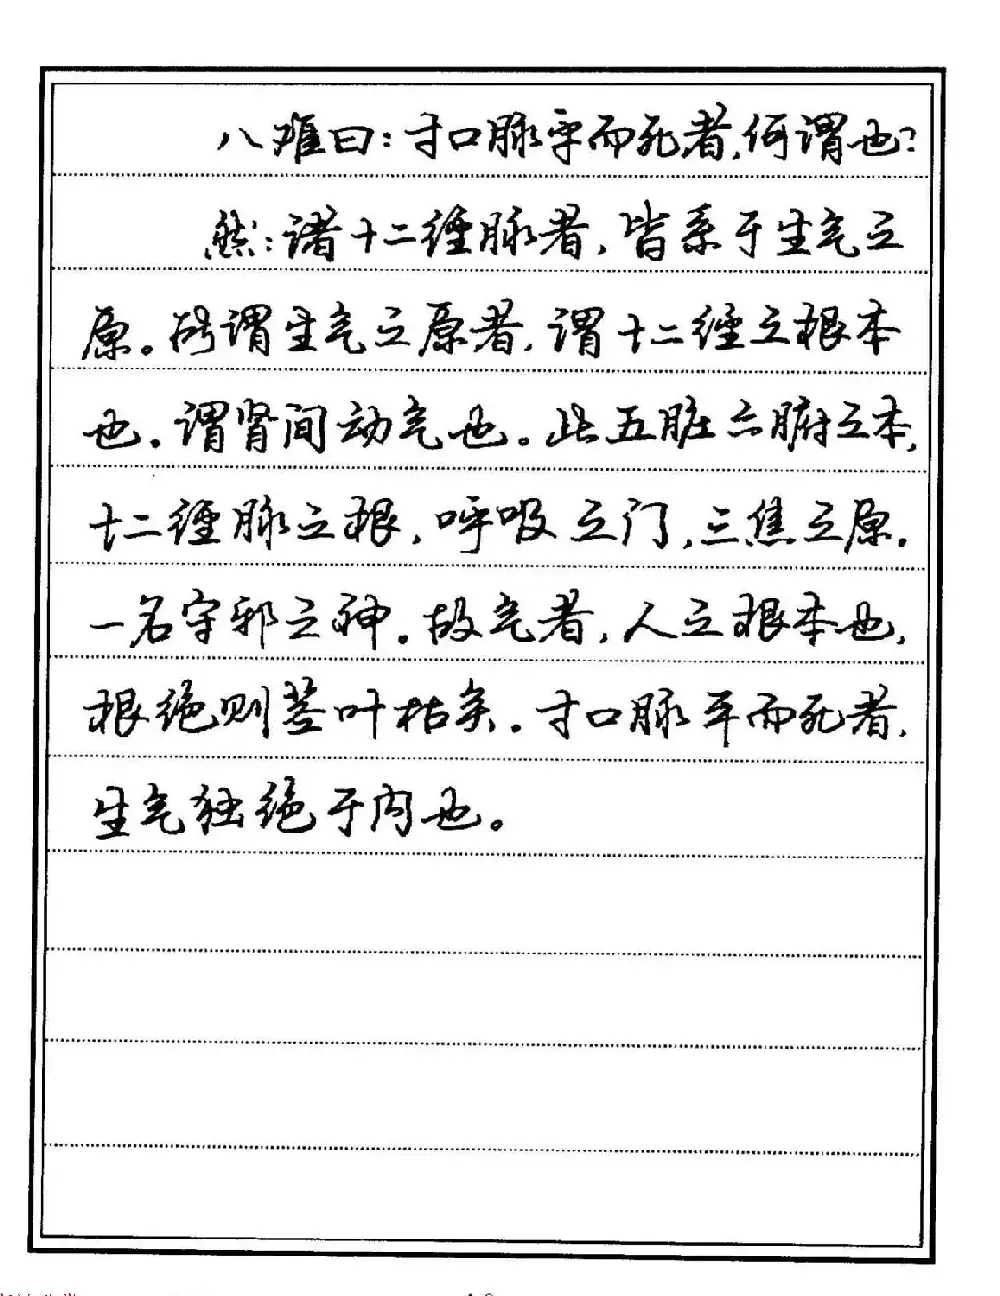 八难曰：寸口脉平而死者，何谓也？
然：诸十二经脉者，皆系于生气之
原。所谓生气之原者，谓十二经之根本
也。谓肾间动气也。此五脏六腑之本，
十二经脉之根，呼吸之门，三焦之原。
一名守邪之神。故气者，人之根本也，
根绝则茎叶枯矣。寸口脉平而死者，
生气独绝于内也。